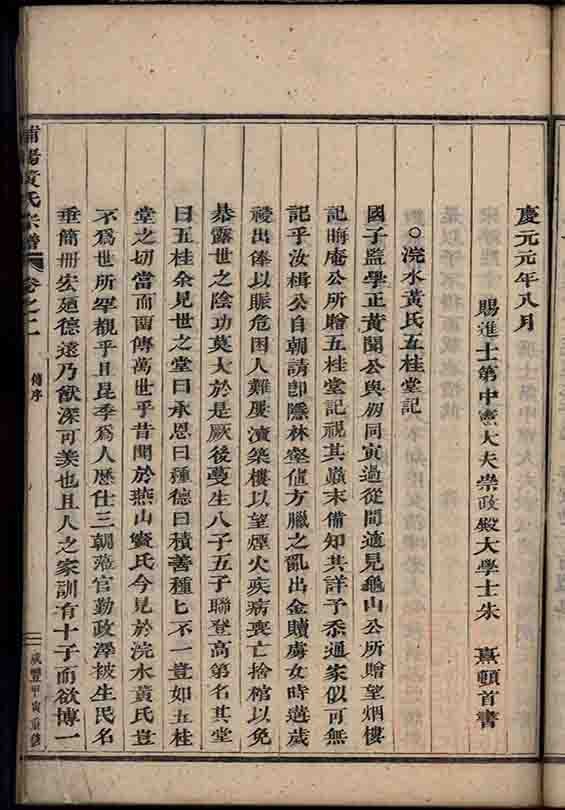 慶元元年八月
賜進士第中憲大夫崇政殿大學士朱　熹頓首書
○浣水黃氏五桂堂記
國子監學正黃閣公與同寅過從間遠見龜山公所贈望烟樓
記晦庵公所贈五桂堂記視其巔末備知其詳予忝通家似可無
記乎汝楫公自朝請卽隱林壑催方臘之亂出金贖虜女時遘歲
祲出俸以賑危困人難屢瀆築樓以望煙火疾病喪亡捨棺以免
暴露世之陰功莫大於是厥後蔓生八子五子聯登高第名其堂
曰五桂余見世之堂曰承恩曰種德曰積善種匕不一豈如五桂
堂之切當而蘭傳萬世乎昔聞於燕山竇氏今見於浣水黃氏豈
不爲世所罕覩乎且昆季爲人歷仕三朝蒞官勤政澤被生民名
垂簡冊宏廸德遠乃猷深可羨也且人之家訓有十子而欲博一
浦陽黃氏宗譜
卷之一
傳序
咸豐甲寅重修